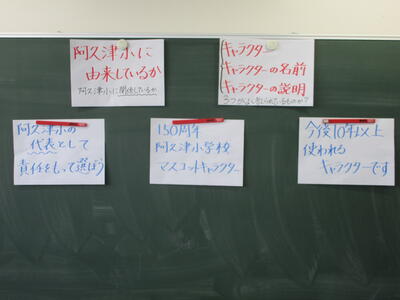 阿久津小に
由来しているか
阿久津小に関係しているか
キャラクター
キャラクターの名前
キャラクターの説明
3つがよく考えられているものか?
阿久津小の
代表として
責任をもって選ぼう
150周年
阿久津小学校
マスコットキャラクター
今後10年以上
使われる
キャラクターです